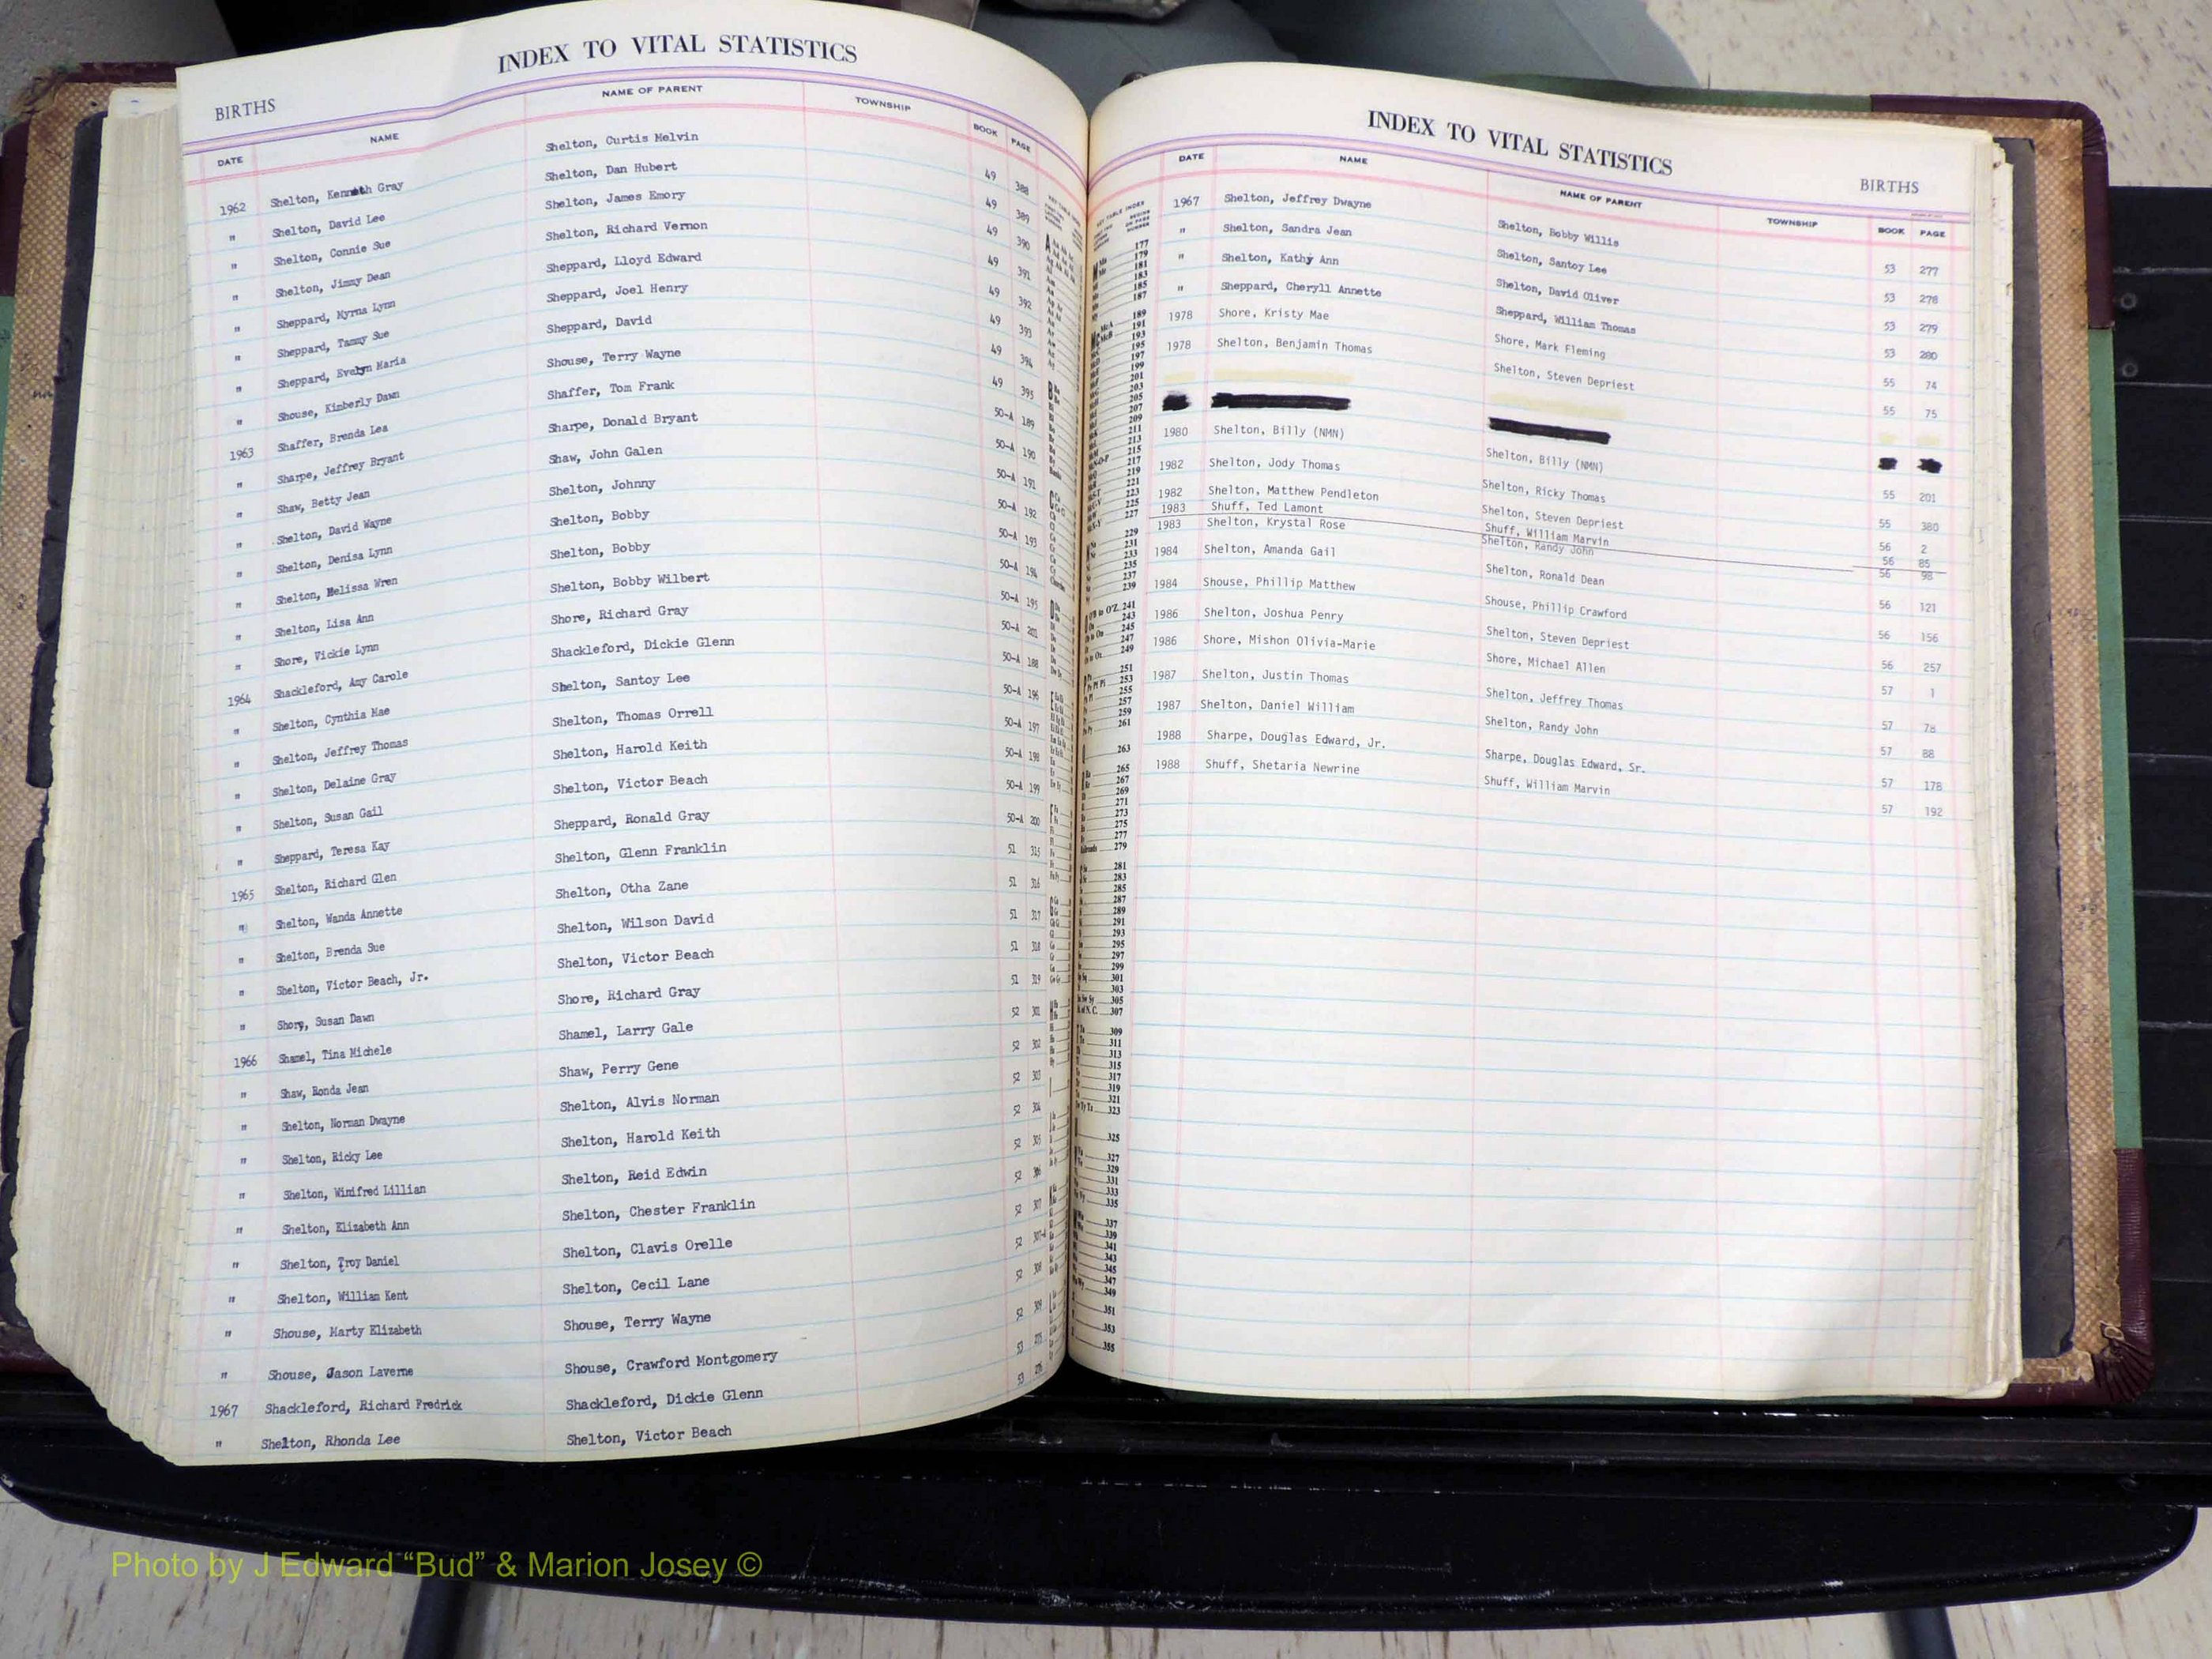 INDEX TO VITAL STATISTICS
BIRTHS
DATE NAME NAME OF PARENT TOWNSHIP BOOK PAGE
1962 Shelton, Kenneth Gray Shelton, Curtis Melvin 49 388
" Shelton, David Lee Shelton, Dan Hubert 49 389
" Shelton, Connie Sue Shelton, James Emory 49 390
" Shelton, Jimmy Dean Shelton, Richard Vernon 49 391
" Sheppard, Myrna Lynn Sheppard, Lloyd Edward 49 392
" Sheppard, Tammy Sue Sheppard, Joel Henry 49 393
" Sheppard, Evelyn Maria Sheppard, David 49 394
" Shouse, Kimberly Dawn Shouse, Terry Wayne 49 395
1963 Shaffer, Brenda Lea Shaffer, Tom Frank 50-A 189
" Sharpe, Jeffrey Bryant Sharpe, Donald Bryant 50-A 190
" Shaw, Betty Jean Shaw, John Galen 50-A 191
" Shelton, David Wayne Shelton, Johnny 50-A 192
" Shelton, Denisa Lynn Shelton, Bobby 50-A 193
" Shelton, Melissa Wren Shelton, Bobby 50-A 194
" Shelton, Lisa Ann Shelton, Bobby Wilbert 50-A 195
" Shore, Vickie Lynn Shore, Richard Gray 50-A 201
1964 Shackleford, Amy Carole Shackleford, Dickie Glenn 50-A 188
" Shelton, Cynthia Mae Shelton, Santoy Lee 50-A 196
" Shelton, Jeffrey Thomas Shelton, Thomas Orrell 50-A 197
" Shelton, Delaine Gray Shelton, Harold Keith 50-A 198
" Shelton, Susan Gail Shelton, Victor Beach 50-A 199
" Sheppard, Teresa Kay Sheppard, Ronald Gray 50-A 200
1965 Shelton, Richard Glen Shelton, Glenn Franklin 51 315
" Shelton, Wanda Annette Shelton, Otha Zane 51 316
" Shelton, Brenda Sue Shelton, Wilson David 51 317
" Shelton, Victor Beach, Jr. Shelton, Victor Beach 51 318
" Shore, Susan Dawn Shore, Richard Gray 51 319
1966 Shamel, Tina Michele Shamel, Larry Gale 52 301
" Shaw, Ronda Jean Shaw, Perry Gene 52 302
" Shelton, Norman Dwayne Shelton, Alvis Norman 52 303
" Shelton, Ricky Lee Shelton, Harold Keith 52 304
" Shelton, Winifred Lillian Shelton, Reid Edwin 52 305
" Shelton, Elizabeth Ann Shelton, Chester Franklin 52 306
" Shelton, Troy Daniel Shelton, Clavis Orelle 52 307
" Shelton, William Kent Shelton, Cecil Lane 52 307-A
" Shouse, Marty Elizabeth Shouse, Terry Wayne 52 308
" Shouse, Jason Laverne Shouse, Crawford Montgomery 52 309
1967 Shackleford, Richard Fredrick Shackleford, Dickie Glenn 53 275
" Shelton, Rhonda Lee Shelton, Victor Beach 53 276
INDEX TO VITAL STATISTICS
BIRTHS
DATE NAME NAME OF PARENT TOWNSHIP BOOK PAGE
1967 Shelton, Jeffrey Dwayne Shelton, Bobby Willis 53 277
" Shelton, Sandra Jean Shelton, Santoy Lee 53 278
" Shelton, Kathy Ann Shelton, David Oliver 53 279
" Sheppard, Cheryll Annette Sheppard, William Thomas 53 280
1978 Shore, Kristy Mae Shore, Mark Fleming 55 74
1978 Shelton, Benjamin Thomas Shelton, Steven Depriest 55 75
1980 Shelton, Billy (NMN) Shelton, Billy (NMN) 55 201
1982 Shelton, Jody Thomas Shelton, Ricky Thomas 55 380
1982 Shelton, Matthew Pendleton Shelton, Steven Depriest 56 2
1983 Shuff, Ted Lamont Shuff, William Marvin 56 85
1983 Shelton, Krystal Rose Shelton, Randy John 56 98
1984 Shelton, Amanda Gail Shelton, Ronald Dean 56 121
1984 Shouse, Phillip Matthew Shouse, Phillip Crawford 56 156
1986 Shelton, Joshua Penry Shelton, Steven Depriest 56 257
1986 Shore, Mishon Olivia-Marie Shore, Michael Allen 57 1
1987 Shelton, Justin Thomas Shelton, Jeffrey Thomas 57 78
1987 Shelton, Daniel William Shelton, Randy John 57 88
1988 Sharpe, Douglas Edward, Jr. Sharpe, Douglas Edward, Sr. 57 178
1988 Shuff, Shetaria Newrine Shuff, William Marvin 57 192
Photo by J Edward “Bud” & Marion Josey ©